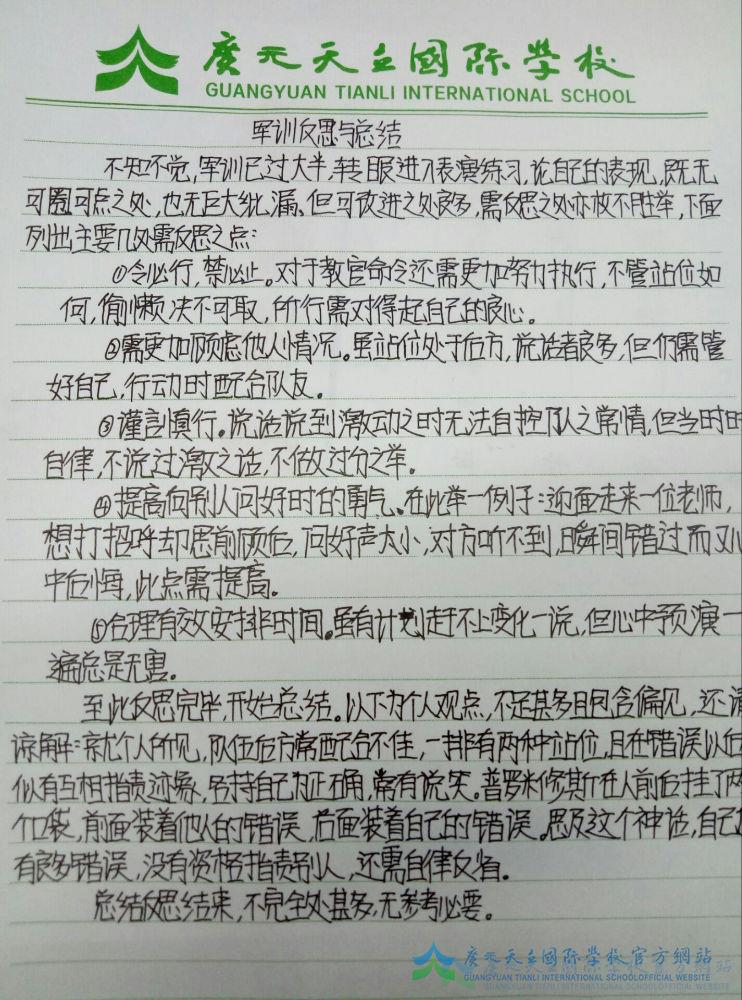 廣元天立國際學校
GUANGYUAN TIANLI INTERNATIONAL SCHOOL
军训反思与总结
不知不觉,军训已过大半,转眼进入表演练习,论自己的表现,既无
可圈可点之处,也无巨大纰漏、但可改进之处良多,需反思之处亦枚不胜举,下面
列出主要几处需反思之点:
①令必行,禁必止。对于教官命令还需更加努力执行,不管站位如
何,偷懒决不可取,所行需对得起自己的良心。
②需更加顾虑他人情况。虽站位处于后方,说话者良多,但仍需管
好自己,行动时配合队友。
③谨言慎行。说话说到激动之时无法自控乃人之常情,但当时时
自律,不说过激之话,不做过分之举。
④提高向别人问好时的勇气。在此举一例子:迎面走来一位老师,
想打招呼却思前顾后,问好声太小,对方听不到,瞬间错过而又心
中后悔,此点需提高。
⑤合理有效安排时间。虽有计划赶不上变化一说,但心中预演一
遍总是无害。
至此反思完毕,开始总结。以下为个人观点,不足甚多且包含偏见,还请
谅解:就个人所见,队伍后方常配合不佳,一排有两种站位,且在错误以后
似有互相指责迹象,另持自己为正确,常有说笑。普罗米修斯在人前后挂了两
个口袋,前面装着他人的错误,后面装着自己的错误。思及这个神话,自己
有良多错误,没有资格指责别人,还需自律反省。
总结反思结束,不完全处甚多,无参考必要。
廣元天立國際學校官方網站
GUANGYUAN TIANLI INTERNATIONAL SCHOOLOFFICIAL WEBSITE